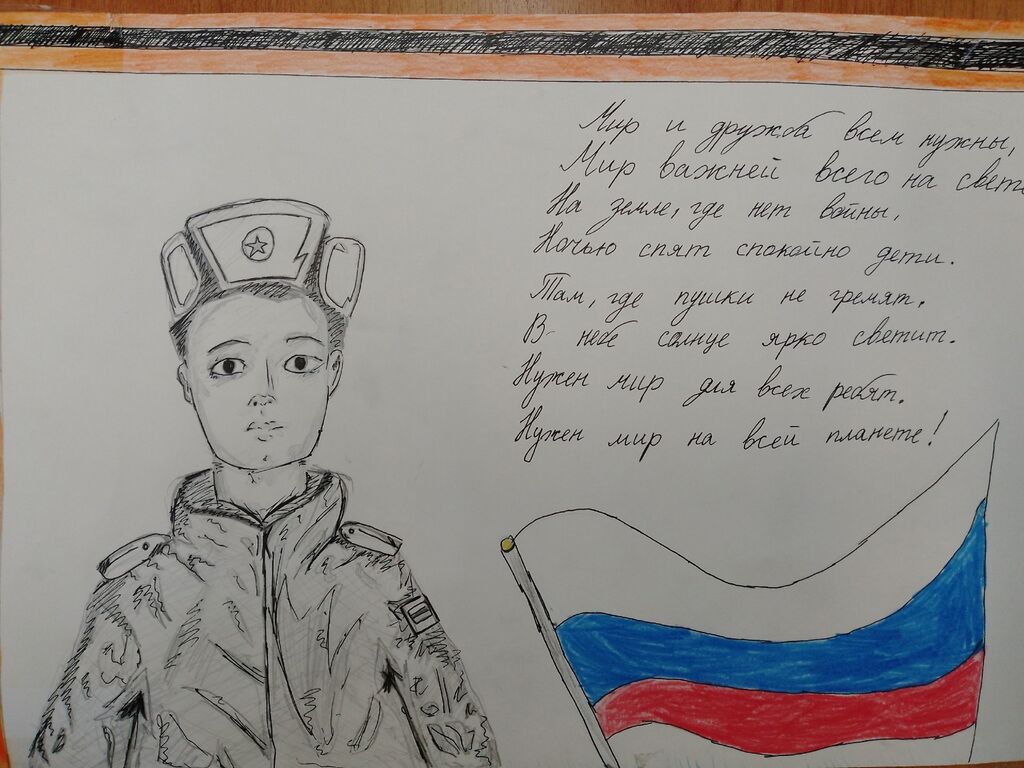 Мир и дружба всем нужны,
Мир важней всего на свете
На земле, где нет войны,
Ночью спят спокойно дети.
Там, где пушки не гремят,
В небе солнце ярко светит.
Нужен мир для всех ребят.
Нужен мир на всей планете!